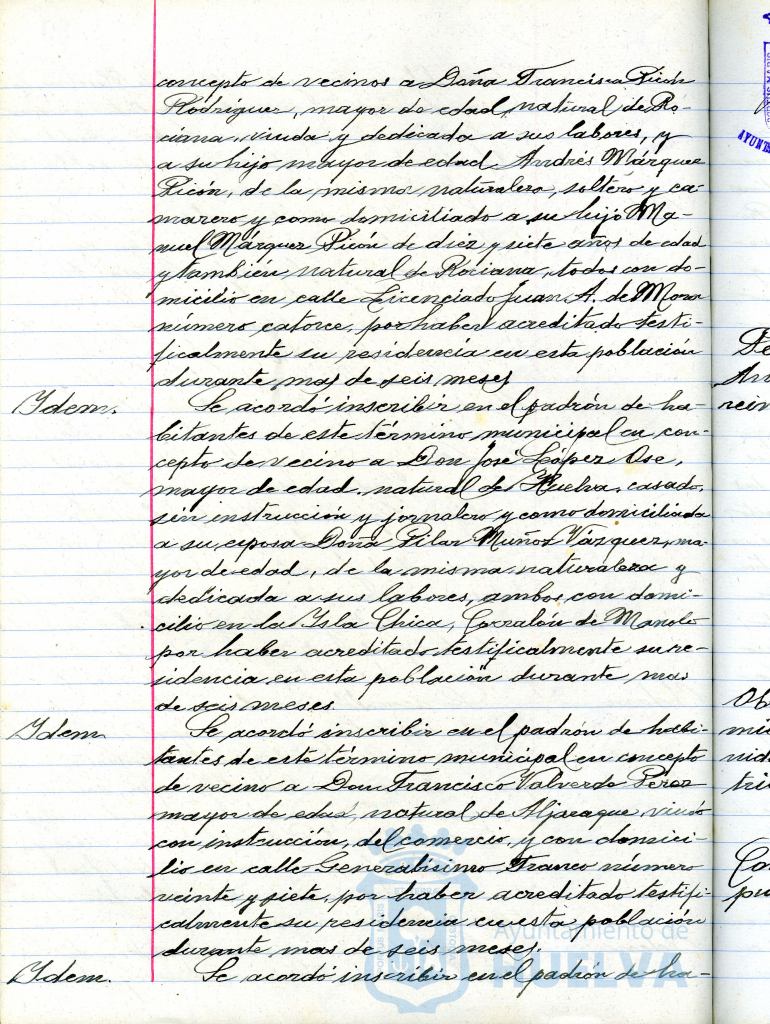 concepto de vecinos a Doña Francisca Picón
Rodríguez, mayor de edad, natural de Ro-
ciana, viuda y dedicada a sus labores, y
a su hijo mayor de edad Andrés Márquez
Picón, de la misma naturaleza, soltero y ca-
marero y como domiciliado a su hijo Ma-
nuel Márquez Picón de diez y siete años de edad
y también natural de Rociana, todos con do-
micilio en calle Licenciado Juan A. de Mora
número catorce, por haber acreditado testi-
ficalmente su residencia en esta población
durante mas de seis meses
Ydem.
Se acordó inscribir en el padrón de ha-
bitantes de este término municipal en con-
cepto de vecino a Don José López Ose,
mayor de edad, natural de Huelva, casado,
sin instrucción y jornalero y como domiciliada
a su esposa Doña Pilar Muñoz Vázquez, ma-
yor de edad, de la misma naturaleza y
dedicada a sus labores, ambos con domi-
cilio en la Isla Chica, Corralón de Manolo
por haber acreditado testificalmente su re-
sidencia en esta población durante mas
de seis meses
Ydem
Se acordó inscribir en el padrón de habi-
tantes de este término municipal en concepto
de vecino a Don Francisco Valverde Pérez
mayor de edad, natural de Aljaraque, viudo
con instrucción, del comercio, y con domici-
lio en calle Generalísimo Franco número
veinte y siete, por haber acreditado testifi-
calmente su residencia en esta población
durante mas de seis meses.
Ydem.
Se acordó inscribir en el padrón de ha-
Ayuntamiento de
HUELVA